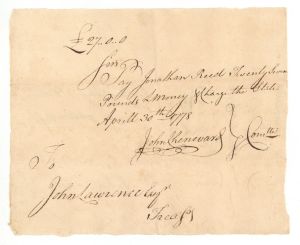 £27.0.0
Sir
Pay Jonathan Reed Twenty Seven
Pounds L Money & Charge the State
Aprill 30th 1778
John Chenevard } Comtte
To
John Lawrence Esqr
Treasr